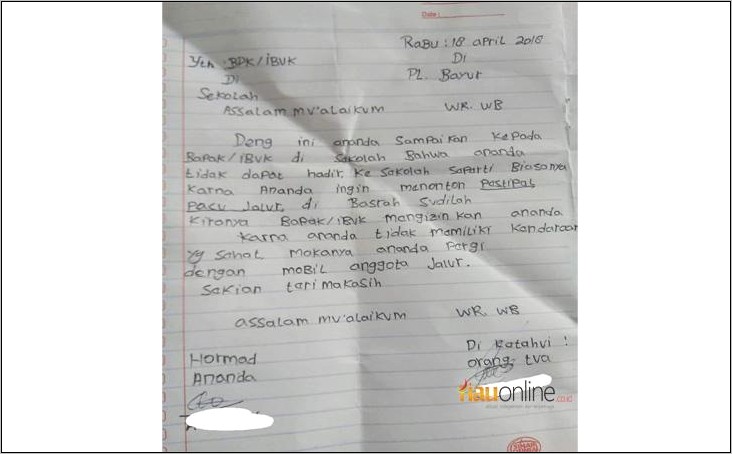 Date:
RaBu : 18 april 2018
Yth : BPK/iBUK
Di
Di
PL. Baru
Sekolah
Assalam mu'alaikum WR. WB
Deng ini ananda sampaikan kepada
Bapak/iBUK di sekolah Bahwa ananda
tidak dapat hadir ke sakolah saparti Biasanya
karna Ananda ingin menonton Pastipal
pacu Jalur, di Basrah Sudilah
Kiranya Bapak/iBUK mangizin kan ananda
Karna ananda tidak memiliki Kandaraan
yg sahat makanya ananda Pargi
dengan moBil anggota Jalur.
Sakian tarimakasih
assalam mu'alaikum WR. WB
Hormad
Ananda
Di katahui :
orang tua
riauonline.co.id